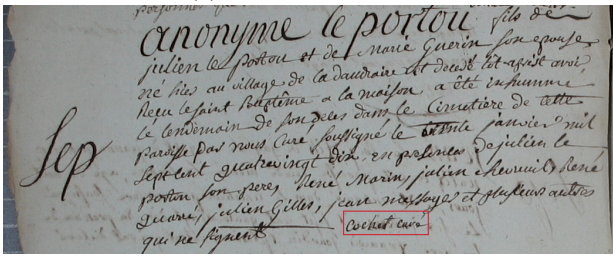 anonyme le portou fils de
julien le portou et de Marie Guerin son epouse
né hier au village de la daudraire est decedé aprist avoir
Recu le saint Baptême a la maison, a été inhumé
le lendemain de son deces dans le Cimetiere de cette
Sep
paroisse par nous Curé soussigné le trente janvier mil
sept cent quatrevingt dix, en presence de julien le
portou son pere, René Marin, julien chevreuil, René
quarré, julien Gilles, jean messayes et plusieurs autres
qui ne signent cochet curé